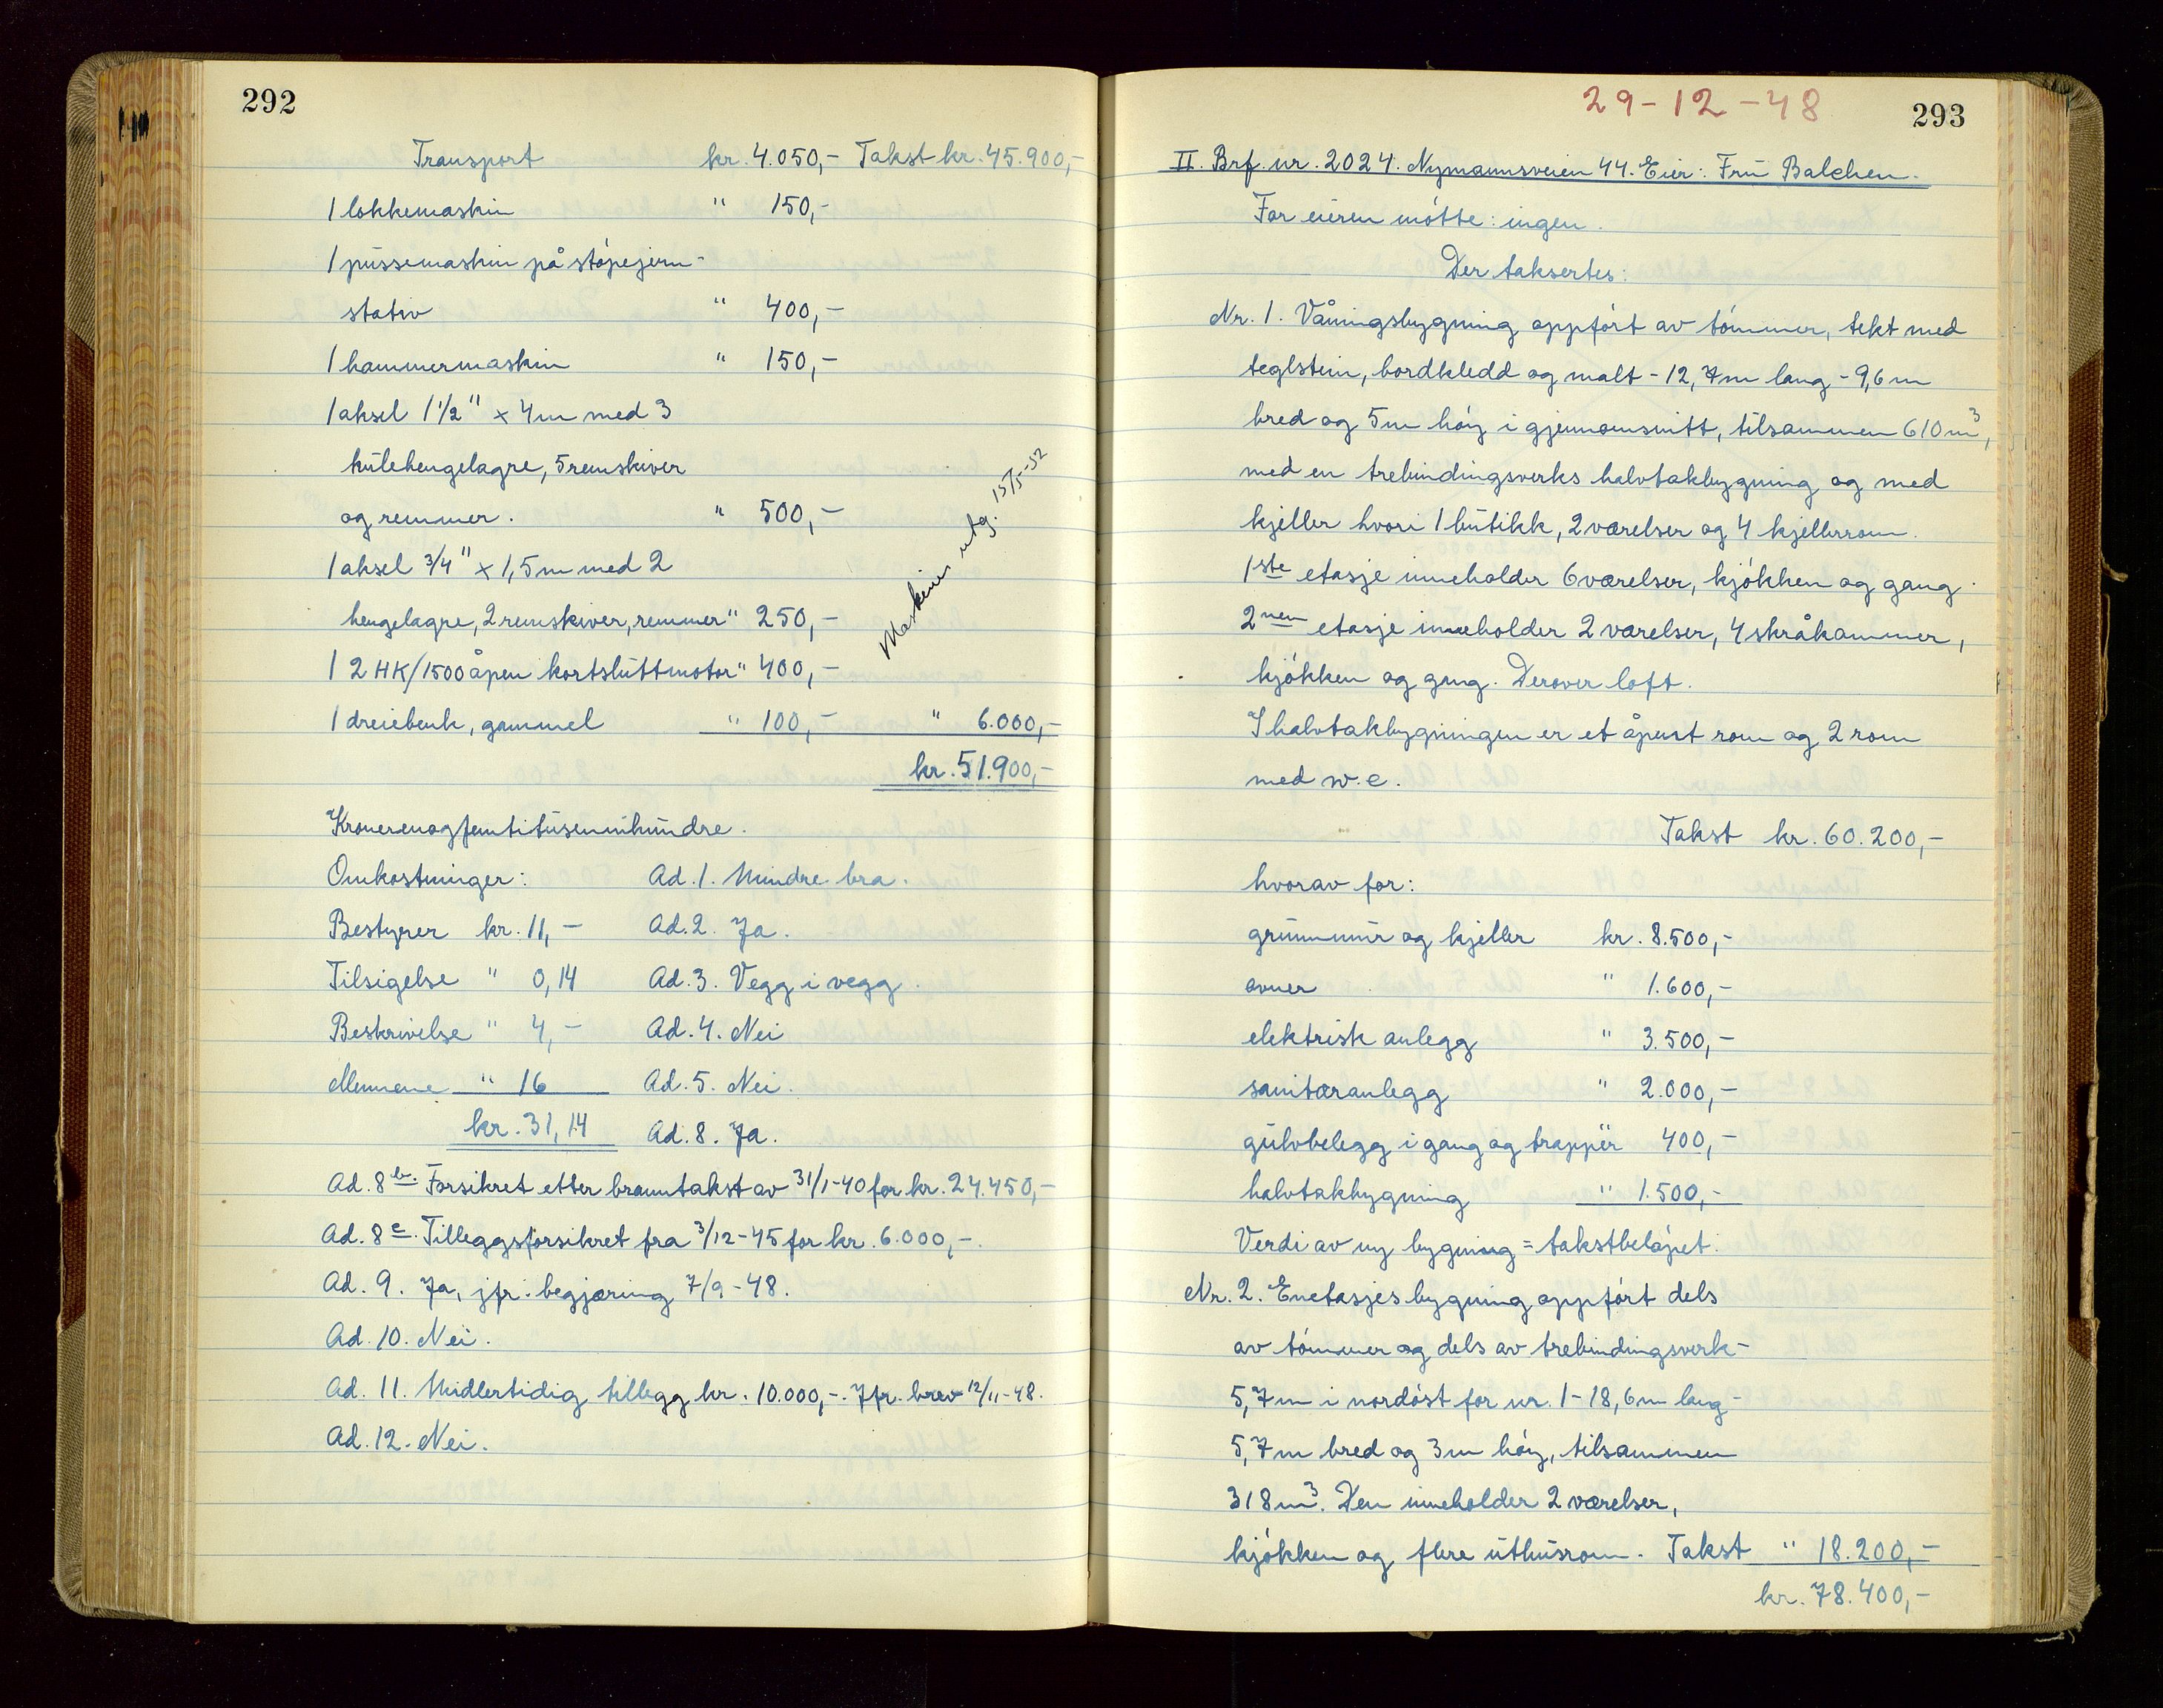 292
Transport kr. 4.050,- Takst kr. 45.900,-
1 lokkemaskin " 150,-
1 pussemaskin på støpejern-
stativ " 400,-
1 hammermaskin " 150,-
1 aksel 1 1/2" x 4m med 3
kulehengelagre, 5 remskiver
og remmer. " 500,-
1 aksel 3/4" x 1,5m med 2
hengelagre, 2 remskiver, remmer " 250,-
1 2 HK/1500 åpen kortsluttmotor " 400,-
1 dreiebenk, gammel " 100,- " 6.000,-
kr. 51.900,-
Maskiner utg. 15/5-52
Kronerenogfemtitusennihundre.
Omkostninger: Ad. 1. Mindre bra.
Bestyrer kr. 11,- Ad. 2. Ja.
Tilsigelse " 0,14 Ad. 3. Vegg i vegg.
Beskrivelse " 4,- Ad. 4. Nei
Mennene " 16 Ad. 5. Nei.
kr. 31,14 Ad. 8. Ja.
Ad. 8b. Forsikret etter branntakst av 31/1-40 for kr. 24.450,-
Ad. 8c. Tilleggsforsikret fra 3/12-45 for kr. 6.000,-.
Ad. 9. Ja, jfr. begjæring 7/9-48.
Ad. 10. Nei.
Ad. 11. Midlertidig tillegg kr. 10.000,-. Jfr. brev 12/11-48.
Ad. 12. Nei.
29-12-48
293
II. Brf. nr. 2024. Nymannsveien 44. Eier: Fru Balchen.
For eieren møtte: ingen.
Der taksertes:
Nr. 1. Våningsbygning oppført av tømmer, tekt med
teglstein, bordkledd og malt - 12,7m lang - 9,6m
bred og 5m høy i gjennomsnitt, tilsammen 610 m3,
med en trebindingsverks halvtakbygning og med
kjeller hvori 1 butikk, 2 værelser og 4 kjellerrom.
1ste etasje inneholder 6 værelser, kjøkken og gang.
2nen etasje inneholder 2 værelser, 4 skråkammer,
kjøkken og gang. Derover loft.
I halvtakbygningen er et åpent rom og 2 rom
med w.c.
Takst kr. 60.200,-
hvorav for:
grunnmur og kjeller kr. 8.500,-
ovner " 1.600,-
elektrisk anlegg " 3.500,-
sanitæranlegg " 2.000,-
gulvbelegg i gang og trapper 400,-
halvtakbygning " 1.500,-
Verdi av ny bygning = takstbeløpet.
Nr. 2. Enetasjes bygning oppført dels
av tømmer og dels av trebindingsverk-
5,7m i nordøst for nr. 1 - 18,6m lang-
5,7m bred og 3m høy, tilsammen
318 m3. Den inneholder 2 værelser,
kjøkken og flere uthusrom. Takst " 18.200,-
kr. 78.400,-